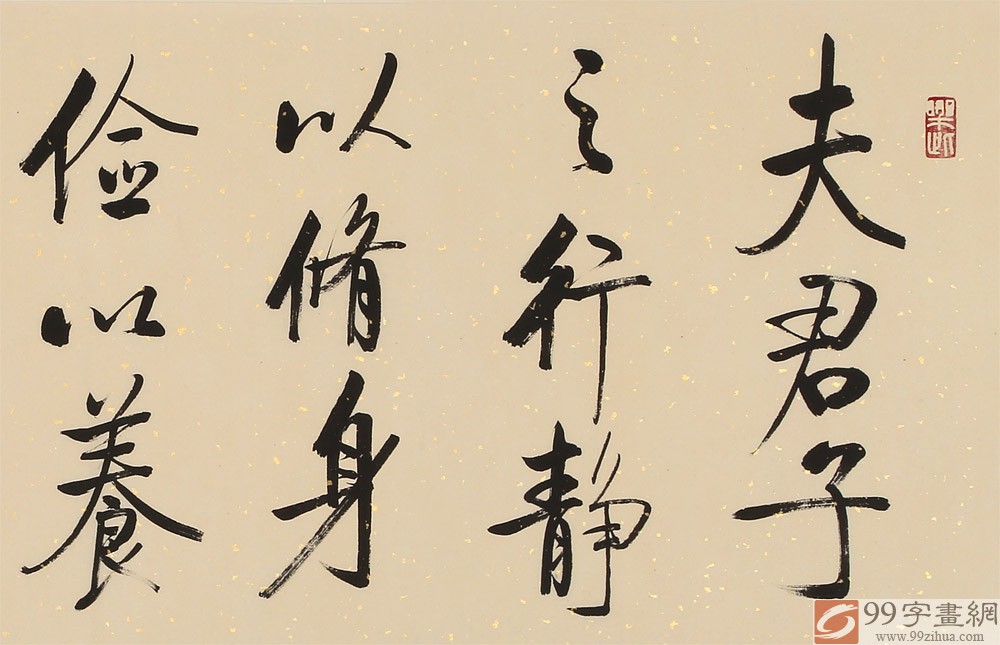 夫君子
之行静
以脩身
儉以養
99字畫網
www.99zihua.com